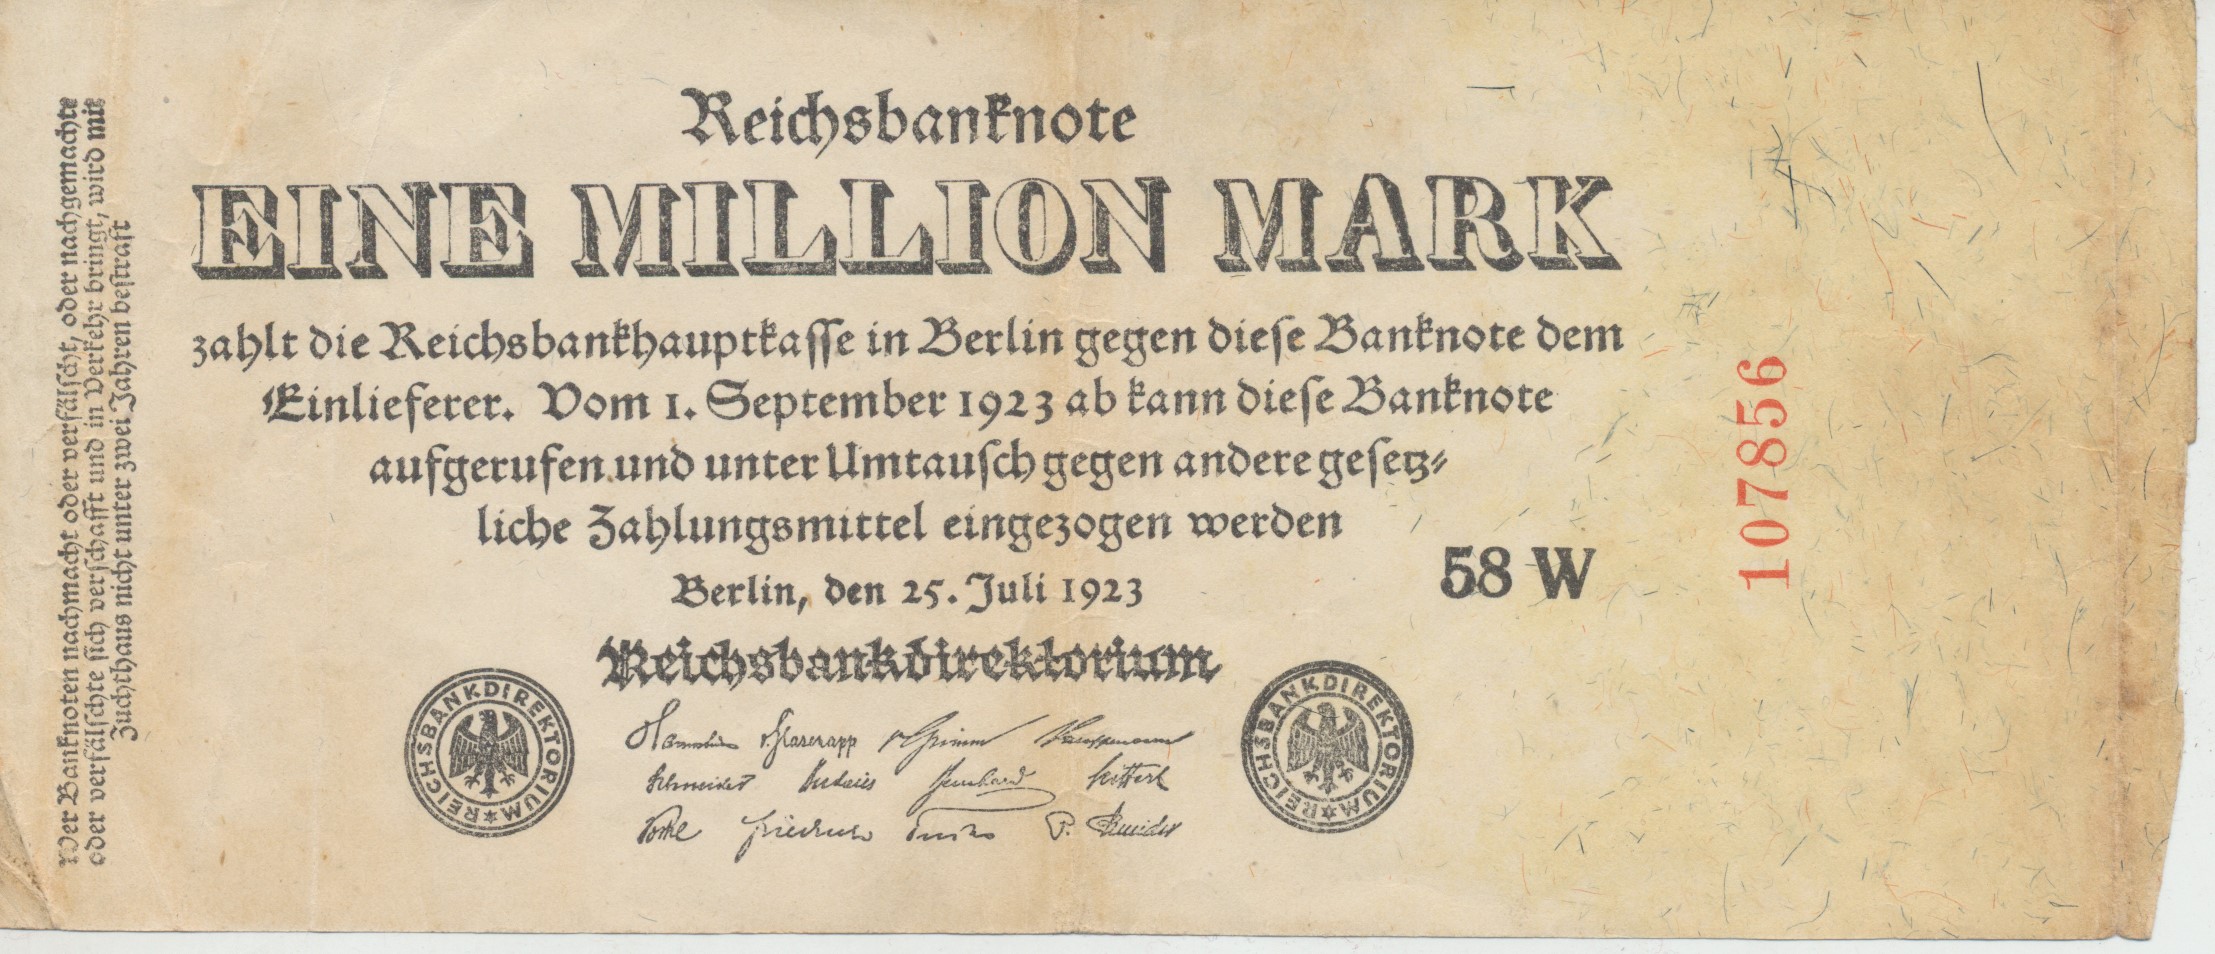 Reichsbanknote
EINE MILLION MARK
zahlt die Reichsbankhauptkasse in Berlin gegen diese Banknote dem
Einlieferer. Vom 1. September 1923 ab kann diese Banknote
aufgerufen und unter Umtausch gegen andere gesetz-
liche Zahlungsmittel eingezogen werden
Berlin, den 25. Juli 1923
58 W
107856
Reichsbankdirektorium
REICHSBANKDIREKTORIUM
REICHSBANKDIREKTORIUM
v. Glasenapp v. Grimm Kauffmann
Schneider Budczies Bernhard Seiffert
Vocke Friedrich Fuchs P. Schneider
Wer Banknoten nachmacht oder verfälscht, oder nachgemachte
oder verfälschte sich verschafft und in Verkehr bringt, wird mit
Zuchthaus nicht unter zwei Jahren bestraft